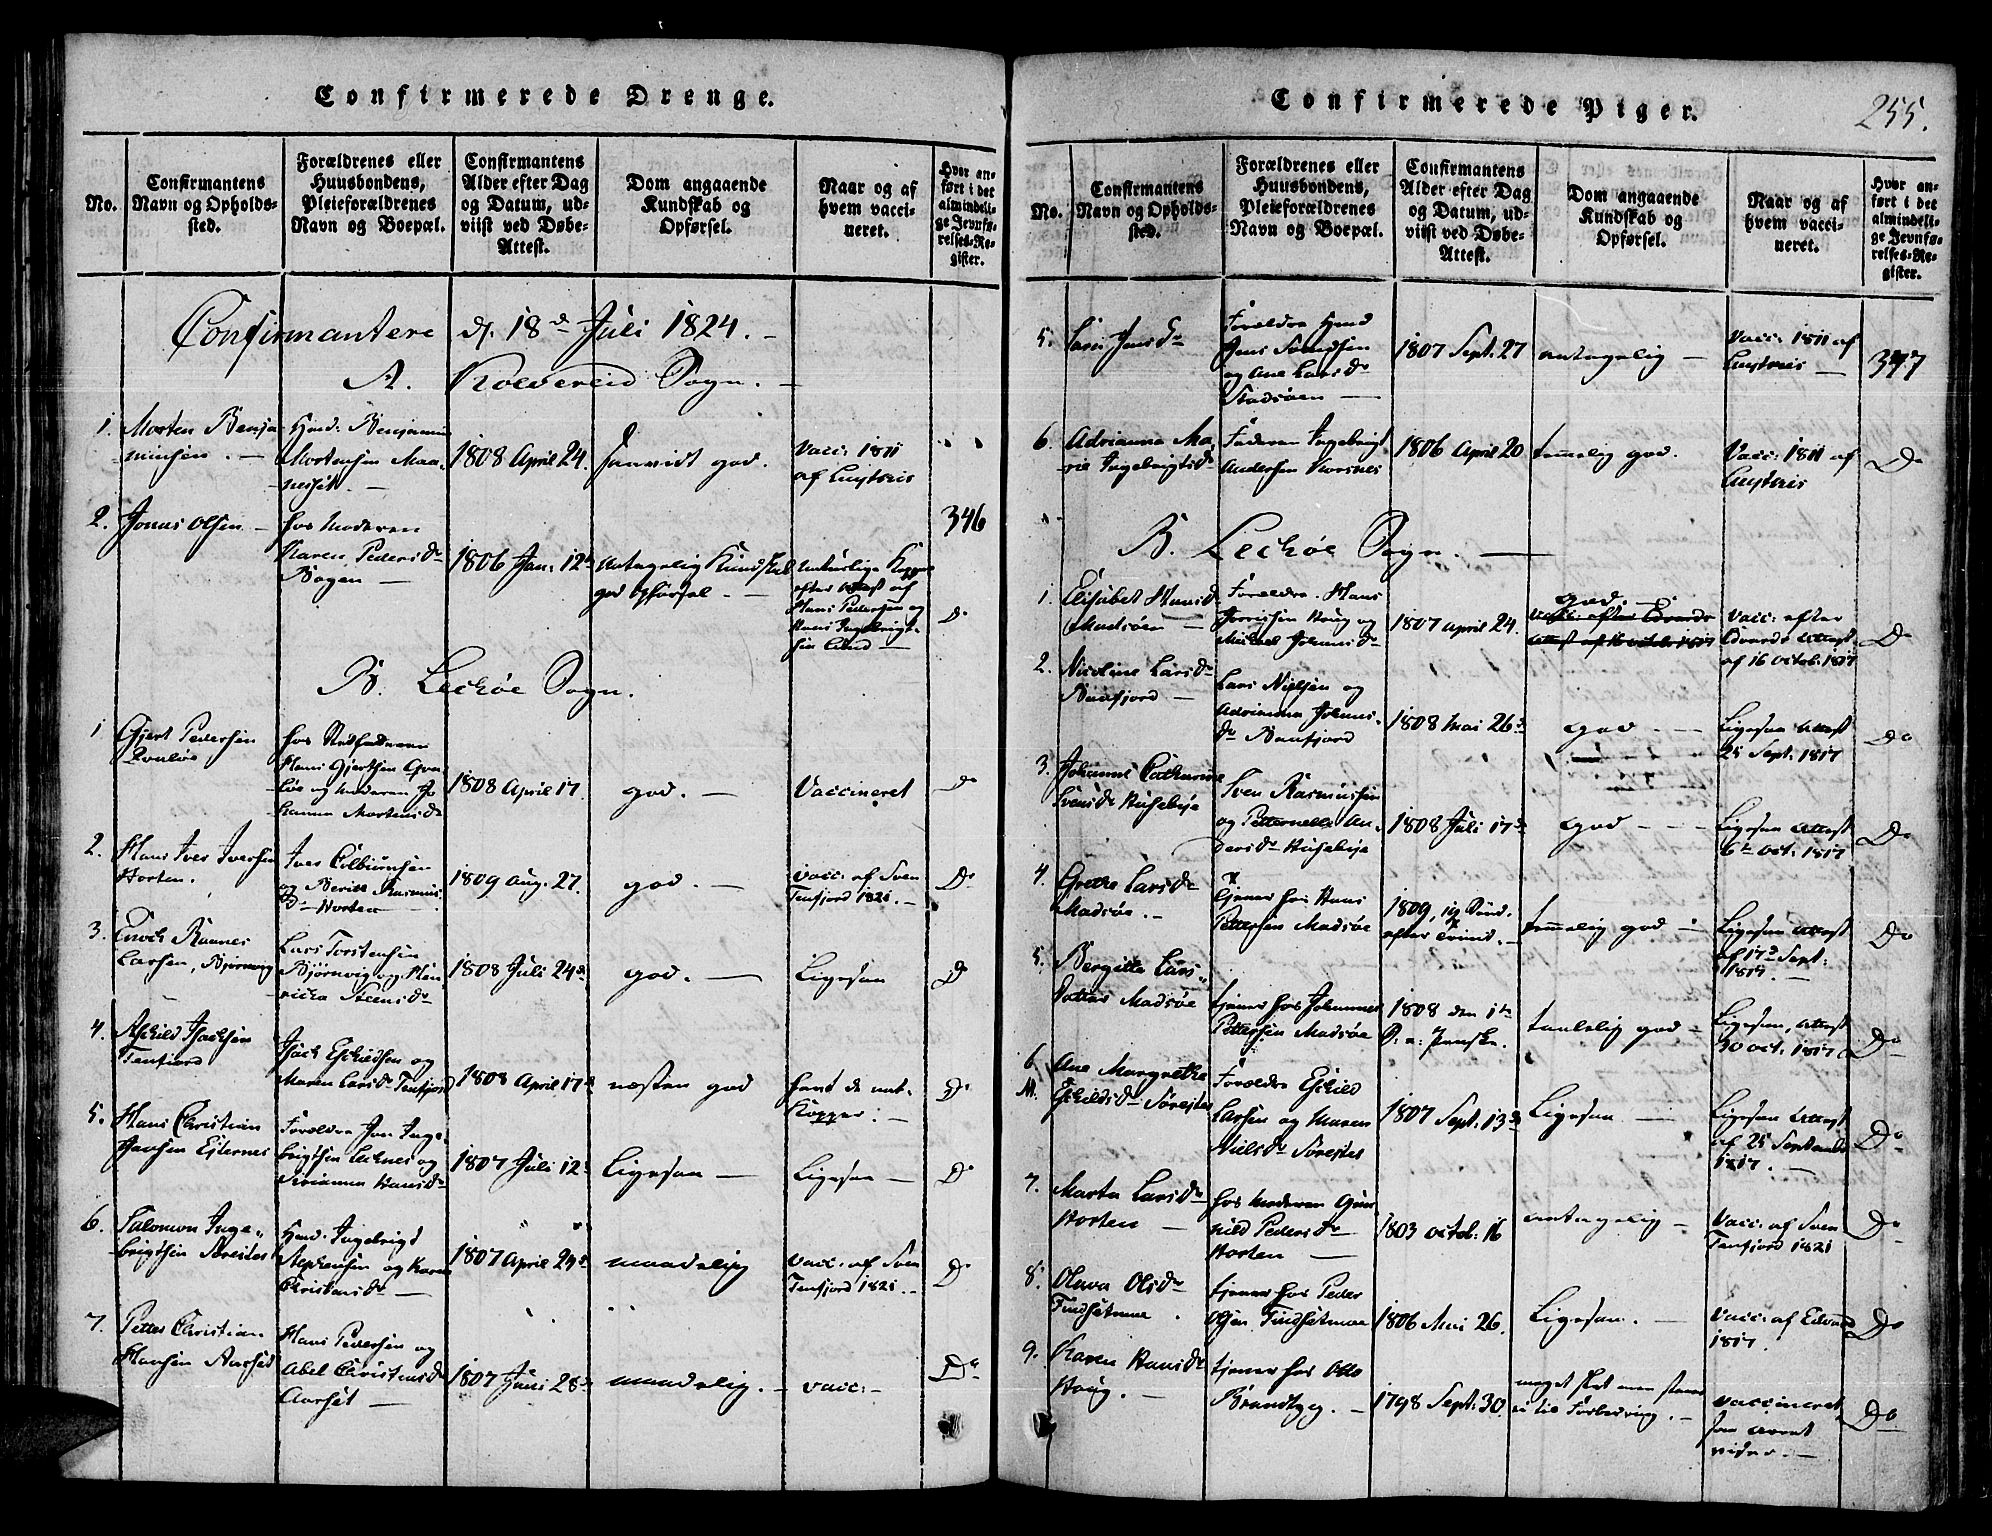 Confirmerede Drenge.
No.
Confirmantens
Navn og Opholds-
sted.
Forældrenes eller
Huusbondens,
Pleieforældrenes
Navn og Boepæl.
Confirmantens
Alder efter Dag
og Datum, ud-
viist ved Døbe-
Attest.
Dom angaaende
Kundskab og
Opførsel.
Naar og af
hvem vacci-
neret.
Hvor an-
ført i det
almindeli-
ge Jevnfø-
relses-Re-
gister.
Confirmantere d. 18de Juli 1824. -
A. Kolvereid Sogn. -
1. Morten Benja-
minsen. -
Benjamin
Mortensen
1808 April 24.
god.
Vacc: 1811
af
2. Jonas Olsen -
hos Moderen
Karen Pedersd.
Bogen -
1806 Jan. 12
Antagelig Kundskab
god Opførsel. -
naturlige Kopper
efter Attest af
Hans Pedersen og
Hans Ingebrigt-
sen
346
Do
B. Leckøe Sogn.
1 Gjert Pedersen
hos Stedfaderen
Hans Gjertsen
og Moderen Jo-
hanna Mortensd.
1808 April 17.
god. -
Vaccineret
Do
2. Hans Iver Iversen
Horten.
Iver
og Berith Rasmus
Dr Horten
1809 Aug. 27.
god. -
vacc. af Sven
Tenfjord 1821. -
Do
3. Enoch
Larsen, Bjørnvig
Lars Torstensen
Bjørnvig og Hen-
ricka Steensdr
1808 Juli 24d
god. -
Ligesaa
Do
4. Eschild Isachsen
Tenfjord
Isach Eschildsen og
Maren Larsdr Tenfjord
1808 April 17d
næsten god
havt de nat.
Kopper. -
Do
5. Hans Christian
Jensen Eiternes
Forældre Jens Inge-
brigtsen Leknes og
Hansdr
1807 Juli 12d
Ligesaa -
Ligesaa -
Do
6. Salomon Inge-
brigtsen Sørester
Ingebrigt
Stephensen og Karen
Christensdr -
1807 April 24d
maadelig
vacc: af Sven
Tenfjord 1821. -
Do
7. Petter Christian
Hansen Aarset
Hans Pedersen og
Abel Christensdr
Aarset -
1807 Juni 28d
maadelig. -
vacc: -
Do
Confirmerede Piger.
255.
No.
Confirmantens
Navn og Opholds-
sted.
Forældrenes eller
Huusbondens,
Pleieforældrenes
Navn og Boepæl.
Confirmantens
Alder efter Dag
og Datum, ud-
viist ved Døbe-
Attest.
Dom angaaende
Kundskab og
Opførsel.
Naar og af
hvem vacci-
neret.
Hvor an-
ført i det
almindeli-
ge Jevnfø-
relses-Re-
gister.
5. Jensdr
Forældre
Jens
og Ane Larsdr
-
1807 Sept. 27
antagelig -
Vacc: 1811 af
-
347
6. Adrianna Ma-
rie Ingebrigtsdr
Faderen Ingebrigt
Andersen
1806 April 20
temmelig god.
Vacc: 1811 af
Do
B. Leckøe Sogn. -
1. Elisabet Hansd
Madsøen -
Forældre Hans
Haug og
Johansdr
1807 April 24.
god. -
Vacc: efter
Edvards Attest
af 16 Octob. 1817
Do
2. Nicoline Larsdr
Lars Nielsen og
Adrianna Johans-
dr
1808 Mai 26d
god -
Ligesaa Attest
25 Sept. 1817
Do
3. Johanna Catharine
Svensdr Husebye
Sven Rasmussen
og Petternelle An-
dersdr Husebye
1808 Juli 17d
god - -
Ligesaa Attest
6te Oct. 1817
Do
4. Grethe Larsdr
Madsøe. -
tjener hos Hans
Pettersen Madsøe
1809, 19 Sønd.
efter Trinit. -
temmelig god -
Ligesaa Attest
af 17d Sept:
1817. -
Do
5. Bergitta Lars-
datter Madsøe
tjener hos Johannes
Pettersen Madsøe
1808 den 1te
S. a: Paaske.
taalelig god -
Ligesaa, Attest
30 Oct. 1817
Do
6 Ane Margrethe
Eschildsdr Sørester
Forældre Eschild
Larsen og Maren
Nielsdr Sørester
1807 Sept. 13d
Ligesaa -
Ligesaa Attest
af 25 Septemb.
1817. -
Do
7. Marta Larsdr
Horten -
hos Moderen Gun-
hild Pedersdr
Horten -
1803 Octob: 16
antagelig -
Vacc: af Sven
Tenfjord 1821
Do
8. Olava Olsdr
tjener hos Peder
Olsen
1806 Mai 26.
Ligesaa. -
Vacc: af Edvard
1817.
Do
9. Karen Hansdr
Haug. -
tjener hos Otto
Brandtzeg. -
1798 Sept. 30.
meget slet men
til Forbedring. -
vaccineret
Do